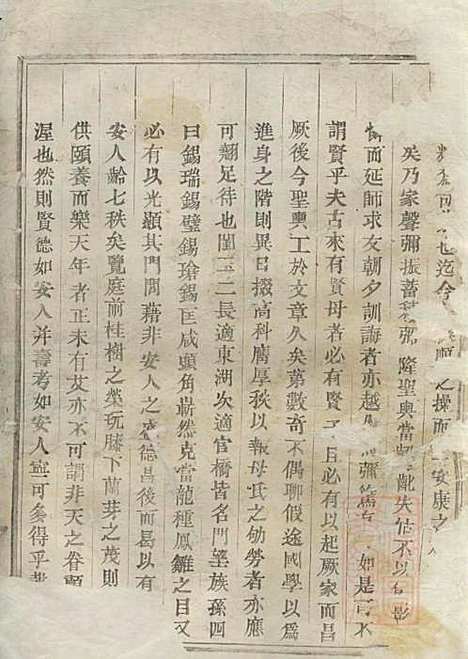 也迄今之操而安康之
矣乃家聲彌振蓄積彌隆聖輿當齠齔失怙不以
而延師求友朝夕訓誨者亦越彌篤如是不
謂賢乎夫古來有賢母者必有賢子且必有以起厥家而昌
厥後今聖輿工於文章久矣第數奇不偶聊假途國學以為
進身之階則異日掇高科膺厚秩以報母氏之劬勞者亦應
可翹足待也閨二長適東湖次適官橋皆名門望族孫四
曰錫瑞錫璧錫瑲錫匡咸頭角嶄然克當龍種鳳雛之目又
必有以光顯其門閭藉非安人之盛德昌後而曷以有
安人齡七秩矣覽庭前桂樹之榮玩膝下蘭芽之茂則
供頤養而樂天年者正未有艾亦不可謂非天之眷顧
渥也然則賢德如安人并壽考如安人寧可多得乎